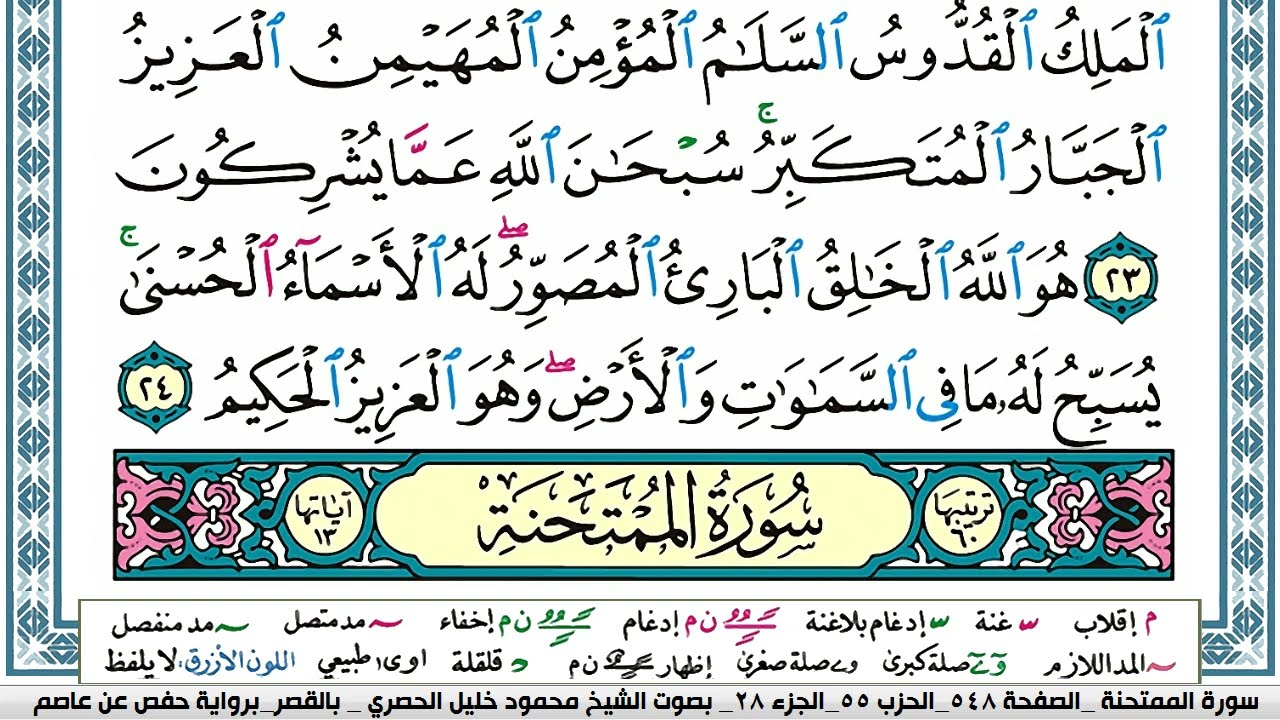 ٱلْمَلِكُ ٱلْقُدُّوسُ ٱلسَّلَـٰمُ ٱلْمُؤْمِنُ ٱلْمُهَيْمِنُ ٱلْعَزِيزُ
ٱلْجَبَّارُ ٱلْمُتَكَبِّرُ ۚ سُبْحَـٰنَ ٱللَّهِ عَمَّا يُشْرِكُونَ
٢٣ هُوَ ٱللَّهُ ٱلْخَـٰلِقُ ٱلْبَارِئُ ٱلْمُصَوِّرُ ۖ لَهُ ٱلْأَسْمَآءُ ٱلْحُسْنَىٰ ۚ
يُسَبِّحُ لَهُۥ مَا فِى ٱلسَّمَـٰوَٰتِ وَٱلْأَرْضِ ۖ وَهُوَ ٱلْعَزِيزُ ٱلْحَكِيمُ ٢٤
ترتيبها ٦٠ سُورَةُ الْمُمْتَحنَةِ آياتها ١٣
م إقلاب س غنة س إدغام بلاغنة ن م إدغام ن م إخفاء مد متصل مد منفصل
المد اللازم صلة كبرى صلة صغرى إظهار ن م قلقلة اوى طبيعي اللون الأزرق: لا يلفظ
سورة الممتحنة _الصفحة ٥٤٨_الحزب ٥٥_الجزء ٢٨_ بصوت الشيخ محمود خليل الحصري _ بالقصر_برواية حفص عن عاصم